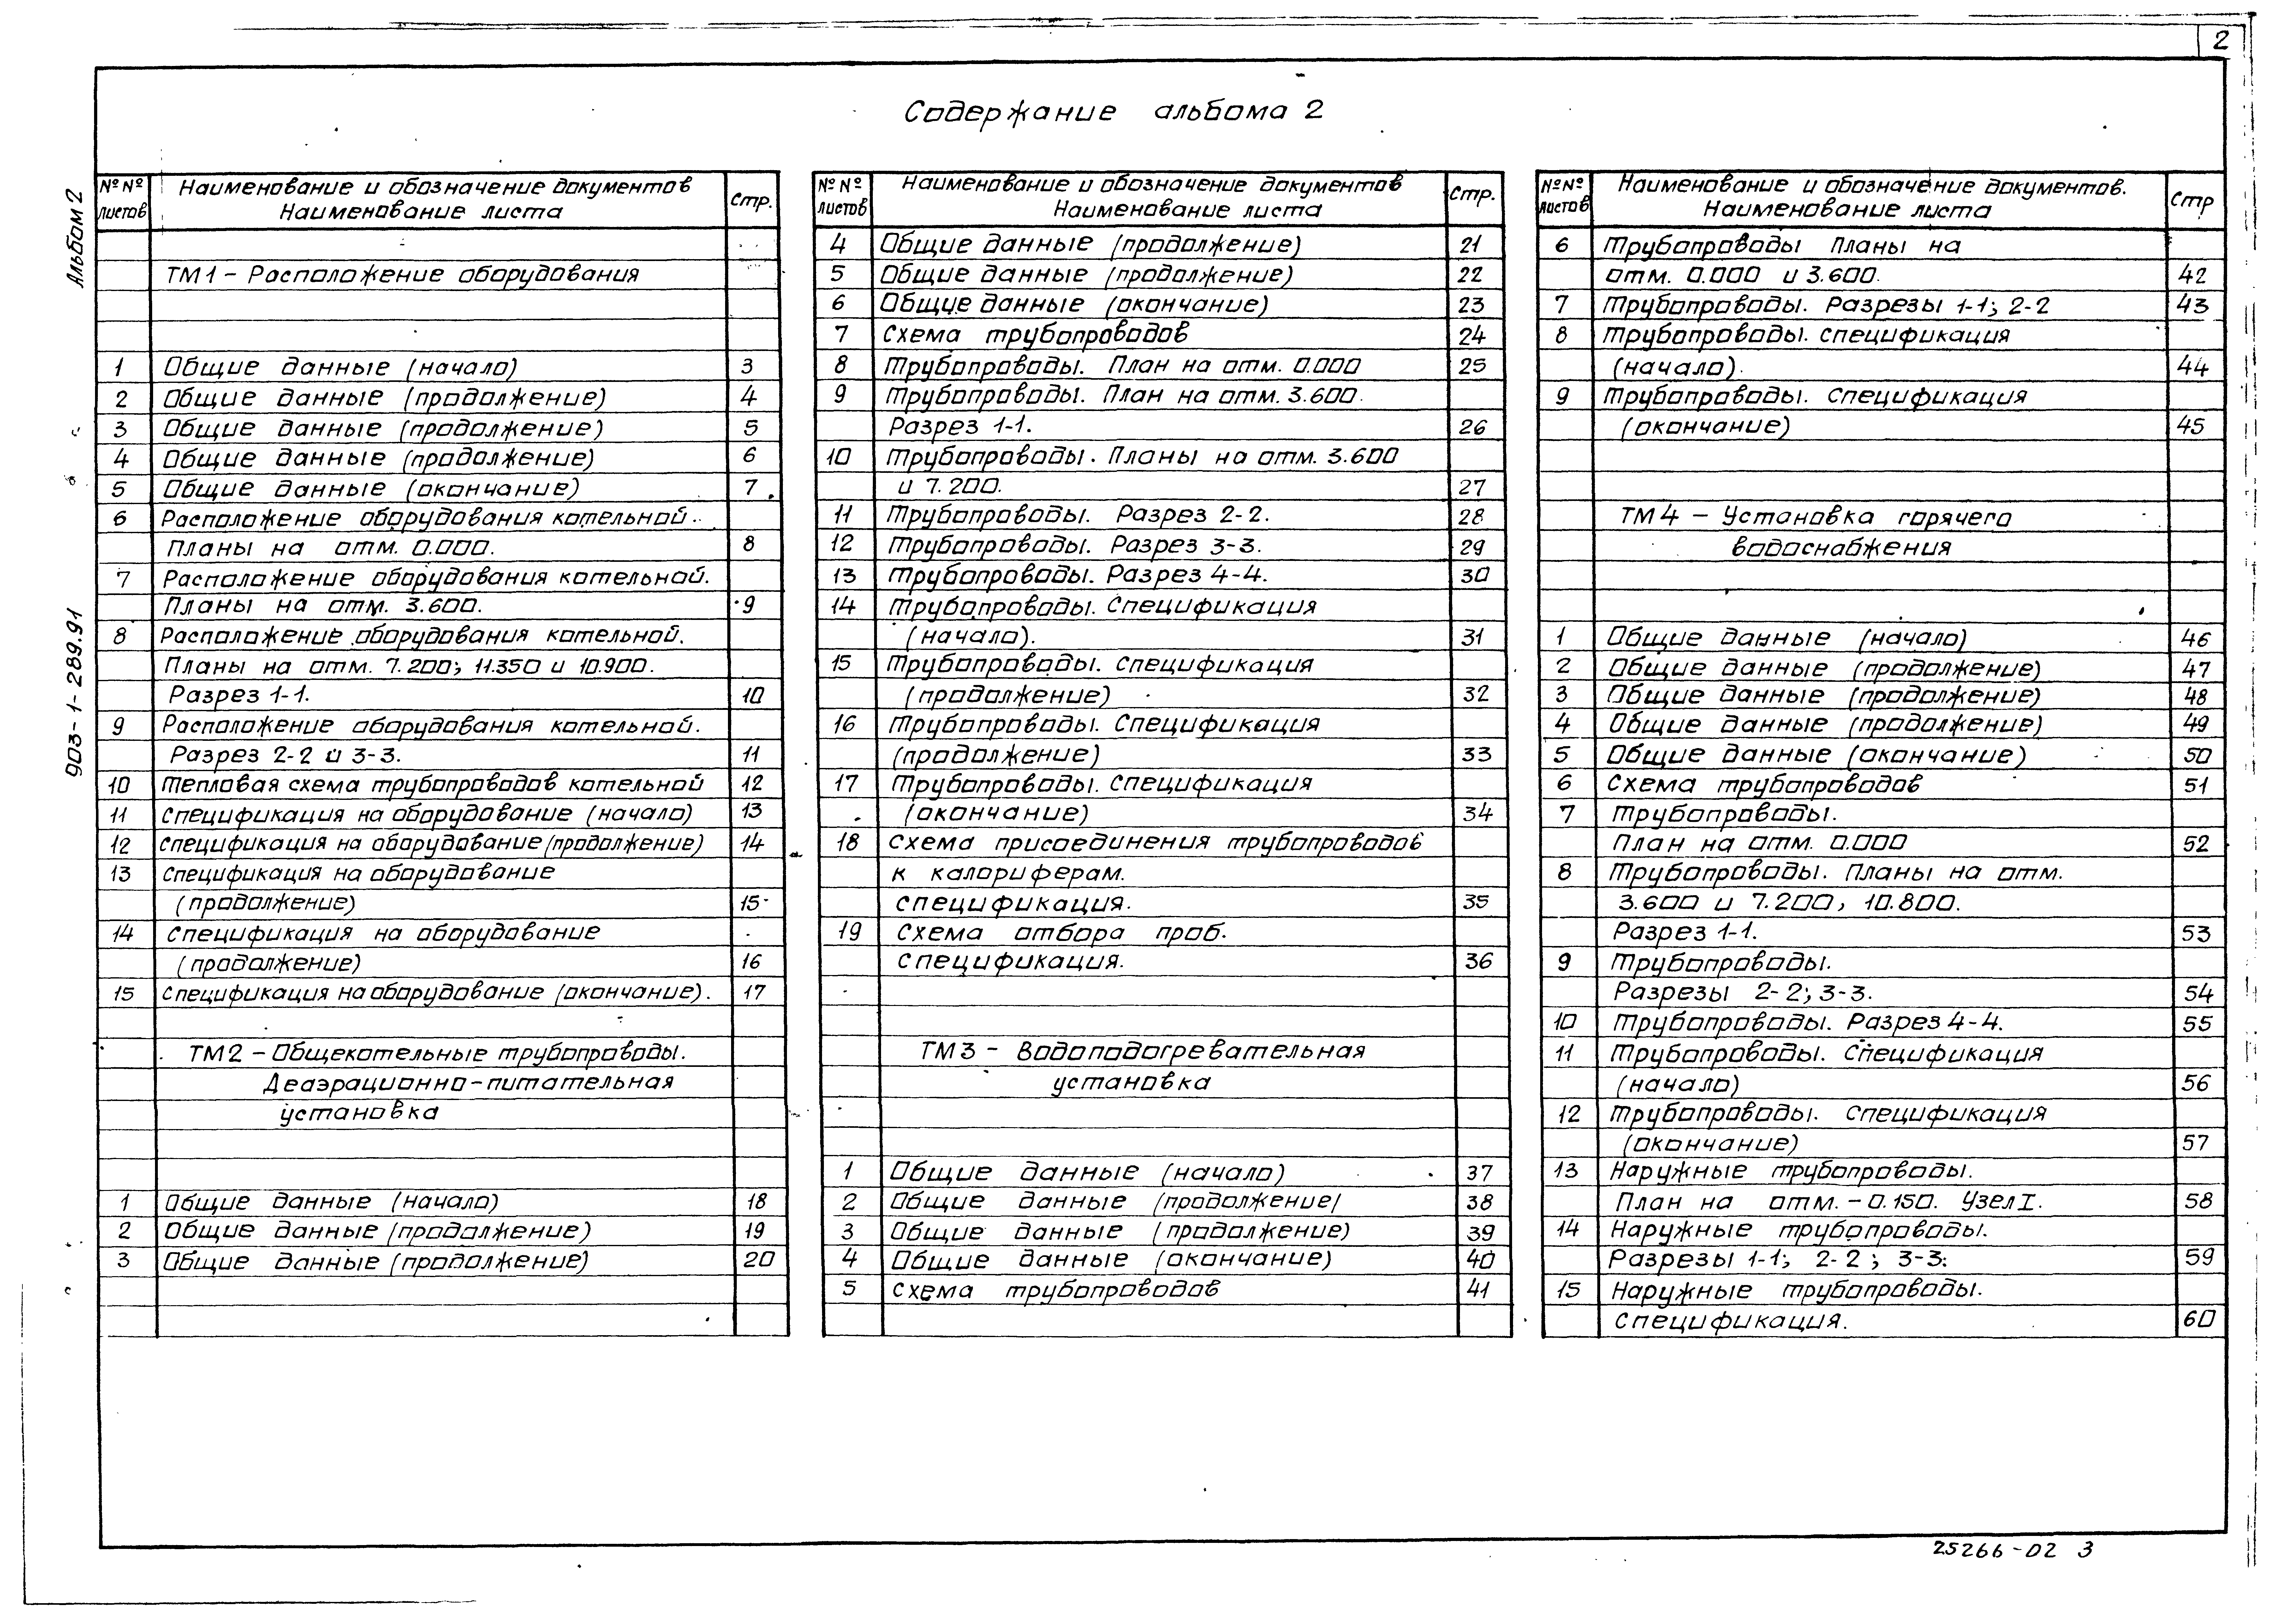 2
Содержание альбома 2
Альбом 2
903-1-289.91
№№ листов
Наименование и обозначение документов
Наименование листа
Стр.
ТМ1 – Расположение оборудования
1 Общие данные (начало) 3
2 Общие данные (продолжение) 4
3 Общие данные (продолжение) 5
4 Общие данные (продолжение) 6
5 Общие данные (окончание) 7
6 Расположение оборудования котельной.
Планы на отм. 0.000. 8
7 Расположение оборудования котельной.
Планы на отм. 3.600. 9
8 Расположение оборудования котельной.
Планы на отм. 7.200; 11.350 и 10.900.
Разрез 1-1. 10
9 Расположение оборудования котельной.
Разрез 2-2 и 3-3. 11
10 Тепловая схема трубопроводов котельной 12
11 Спецификация на оборудование (начало) 13
12 Спецификация на оборудование (продолжение) 14
13 Спецификация на оборудование
(продолжение) 15
14 Спецификация на оборудование
(продолжение) 16
15 Спецификация на оборудование (окончание). 17
ТМ2 – Общекотельные трубопроводы.
Деаэрационно-питательная
установка
1 Общие данные (начало) 18
2 Общие данные (продолжение) 19
3 Общие данные (продолжение) 20
№№ листов
Наименование и обозначение документов
Наименование листа
Стр.
4 Общие данные (продолжение) 21
5 Общие данные (продолжение) 22
6 Общие данные (окончание) 23
7 Схема трубопроводов 24
8 Трубопроводы. План на отм. 0.000 25
9 Трубопроводы. План на отм. 3.600.
Разрез 1-1. 26
10 Трубопроводы. Планы на отм. 3.600
и 7.200. 27
11 Трубопроводы. Разрез 2-2. 28
12 Трубопроводы. Разрез 3-3. 29
13 Трубопроводы. Разрез 4-4. 30
14 Трубопроводы. Спецификация
(начало). 31
15 Трубопроводы. Спецификация
(продолжение) 32
16 Трубопроводы. Спецификация
(продолжение) 33
17 Трубопроводы. Спецификация
(окончание) 34
18 Схема присоединения трубопроводов
к калориферам.
Спецификация. 35
19 Схема отбора проб.
Спецификация. 36
ТМ3 – Водоподогревательная
установка
1 Общие данные (начало) 37
2 Общие данные (продолжение/ 38
3 Общие данные (продолжение) 39
4 Общие данные (окончание) 40
5 Схема трубопроводов 41
№№ листов
Наименование и обозначение документов.
Наименование листа
Стр
6 Трубопроводы Планы на
отм. 0.000 и 3.600. 42
7 Трубопроводы. Разрезы 1-1; 2-2 43
8 Трубопроводы. Спецификация
(начало). 44
9 Трубопроводы. Спецификация
(окончание) 45
ТМ4 – Установка горячего
водоснабжения
1 Общие данные (начало) 46
2 Общие данные (продолжение) 47
3 Общие данные (продолжение) 48
4 Общие данные (продолжение) 49
5 Общие данные (окончание) 50
6 Схема трубопроводов 51
7 Трубопроводы.
План на отм. 0.000 52
8 Трубопроводы. Планы на отм.
3.600 и 7.200, 10.800.
Разрез 1-1. 53
9 Трубопроводы.
Разрезы 2-2; 3-3. 54
10 Трубопроводы. Разрез 4-4. 55
11 Трубопроводы. Спецификация
(начало) 56
12 Трубопроводы. Спецификация
(окончание) 57
13 Наружные трубопроводы.
План на отм. -0.150. Узел I. 58
14 Наружные трубопроводы.
Разрезы 1-1; 2-2; 3-3. 59
15 Наружные трубопроводы.
Спецификация. 60
25266-02 3